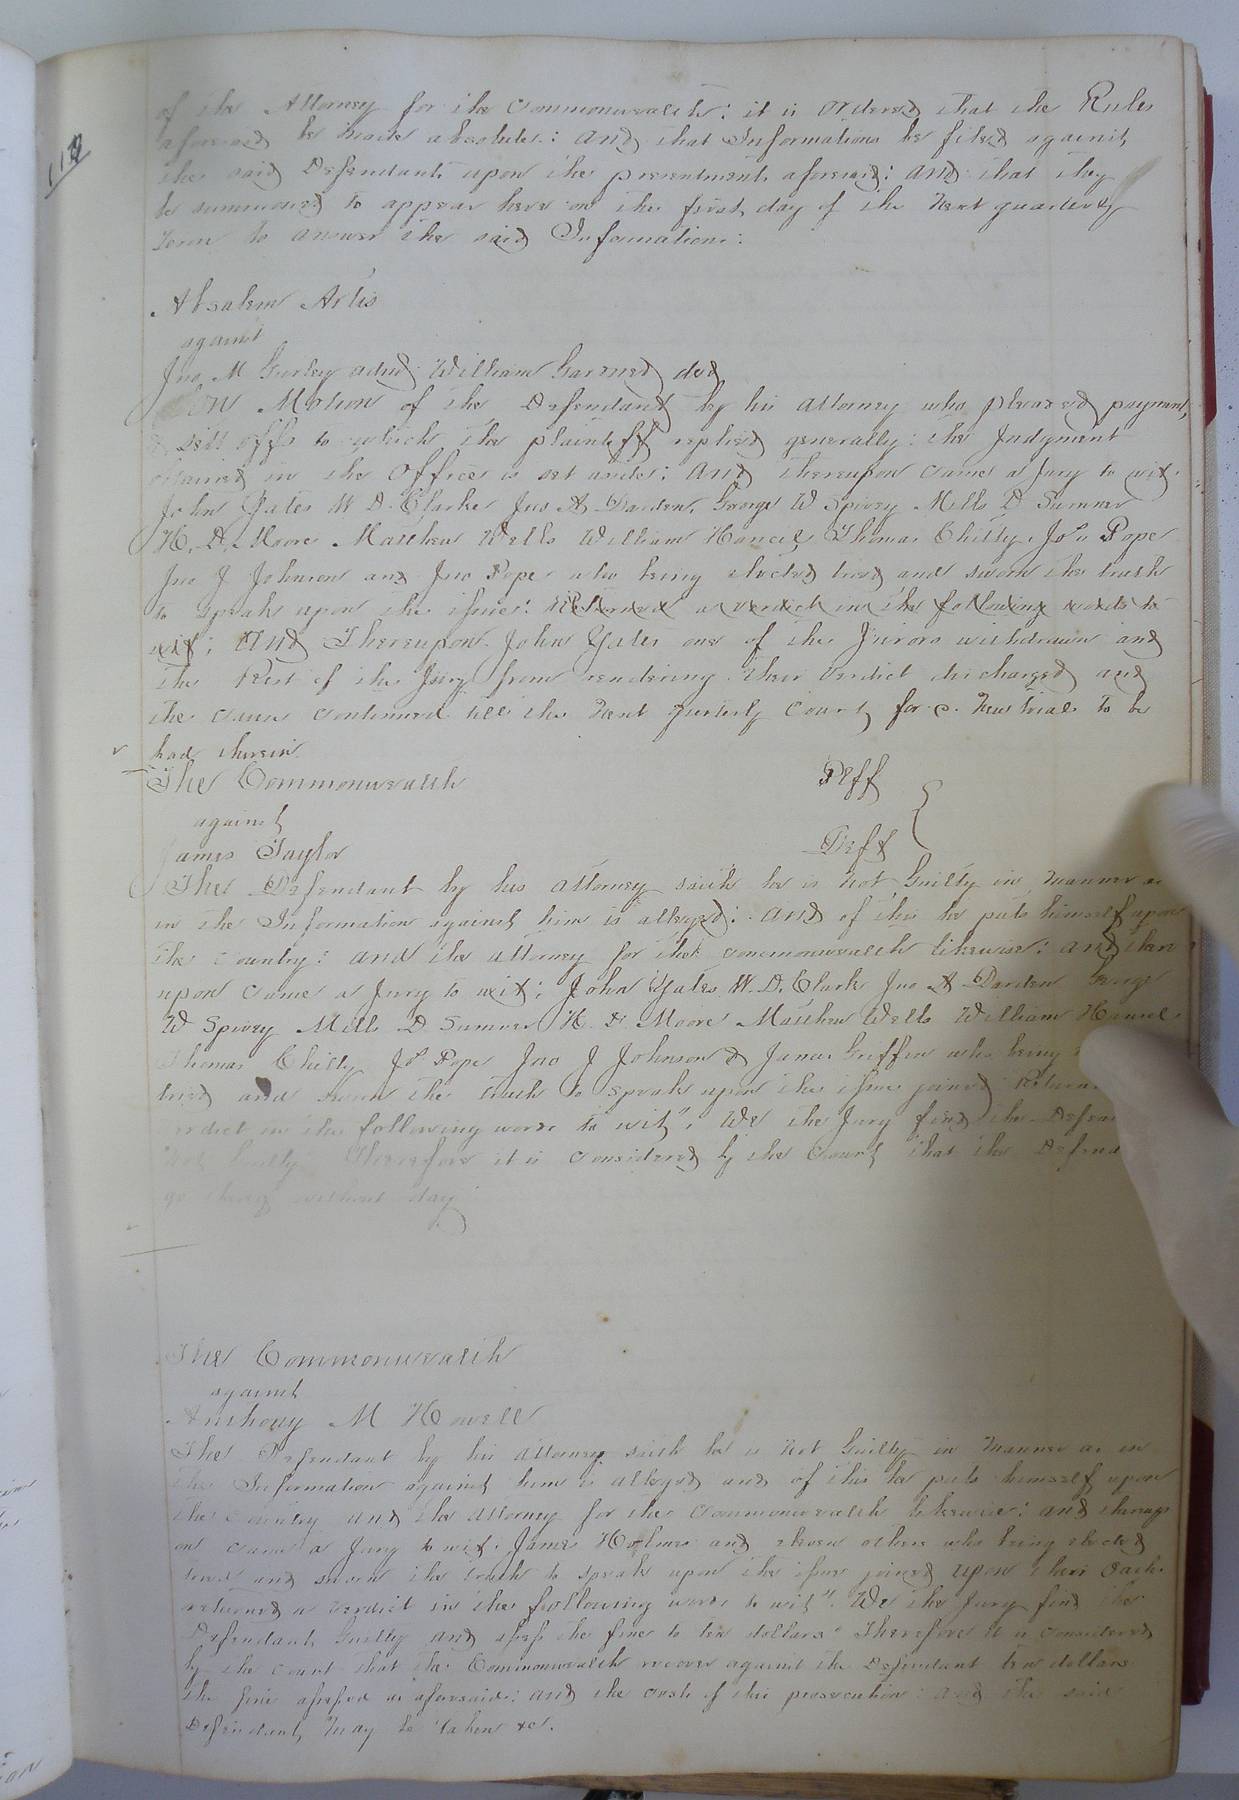 118
of the Attorney for the Commonwealth: it is ordered that the Rules
aforesaid be made absolute: and that Informations be filed against
the said Defendants upon the presentments aforesaid: and that they
be summoned to appear here on the first day of the next quarterly
Term to answer the said Informations:
Absalem Artis
against
Jno M Gurley adm'd William Garrned decd
On Motion of the Defendant by his attorney who pleaded payment,
& sett offs to which the plaintiff replied generally: the Judgment
obtained in the Office is set aside: and thereupon came a Jury to wit:
John Yates W. D. Clarke Jno A Darden, George W Spivey Mills D Sumner
H. D. Moore Matthew Wells William Hancel, Thomas Chitty, Jos. Pope
Jno J Johnson and Jno Pope who being elected tried and sworn the truth
to speak upon the issue: returned a verdict in the following words to
wit; And Thereupon John Yates one of the Jurors withdrawn and
the Rest of the Jury from rendering their verdict discharged and
the cause continued till the next Qurterly Court, for a New trial to be
had therein.
The Commonwealth Plff
against
James Taylor Deft
The Defendant by his attorney saith he is not Guilty in manner as
in the Information against him is alleged: and of this he puts himself upon
the Country: and the attorney for the commonwealth likewise: and there
upon came a Jury to wit; John Yates W. D. Clark Jno A Darden George
W Spivey Mills D Sumner H. D. Moore Matthew Wells William Hancel
Thomas Chitty Jos. Pope Jno J Johnson & James Griffin who being
tried and sworn the truth to speak upon the issue joined Return
verdict in the following words to wit, "We the Jury find the Defen
Not Guilty" Therefore it is considered by the Court that the Defend
go thereof without day
The Commonwealth
against
Anthony M Howell
The Defendant by his attorney saith he is not Guilty in manner as in
the Information against him is alleged and of this he puts himself upon
the country and the attorney for the Commonwealth likewise: and thereup
on came a Jury to wit. James Holmes and eleven others who being elected
tried and sworn the truth to speak upon the issue joined upon their Oath
returned a verdict in the following words to wit". We the Jury find the
Defendant, Guilty and assess the fine to ten dollars" Therefore it is considered
by the court that the Commonwealth recover against the Defendant ten dollars
the fine assessed as aforesaid: and the costs of this prosecution: and the said
Defendant, may be taken &c.